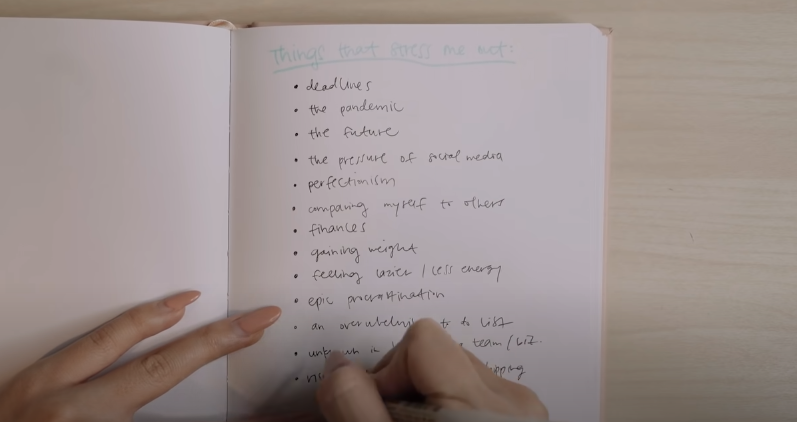 Things that stress me out:
• deadlines
• the pandemic
• the future
• the pressure of social media
• perfectionism
• comparing myself to others
• finances
• gaining weight
• feeling lazier / less energy
• epic procrastination
• an to do list
• in team / biz
•